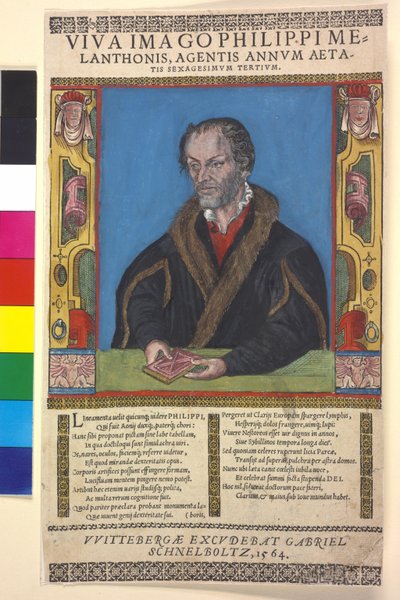 VIVA IMAGO PHILIPPI ME=
LANTHONIS, AGENTIS ANNVM AETA-
TIS SEXAGESIMVM TERTIVM.
Lineamenta uelit quicunq; uidere PHILIPPI,
Qui fuit Aonij duxq; paterq; chori:
Hanc sibi proponat pictam sine labe tabellam,
In qua doctiloqui sunt simulachra uiri.
Et nares, oculos, faciemq; referre uidetur,
Est quod mirandæ dexteritatis opus.
Corporis artifices possunt effingere formam,
Lucpluam mentem pingere nemo potest.
Artibus hæc etenim uarijs studijsq; polita,
Ac multa rerum cognitione fuit.
Quod pariter præclara probant monumenta la-
Quæ iuuenis genij dexteritate sui. (boris,
Pergeret ut claris Europam spargere lymphis,
Hesperijq; dolos frangere, uimq; lupi:
Viuere Nestoreos esset uir dignus in annos,
Siue Sybillinos tempora longa dies.
Sed quoniam celeres ruperunt licia Parcæ,
Transijt ad superas pulchra per astra domos.
Nunc ubi læta canit cœlesti iubila uoce,
Et celebrat summi picta stupenda DEI.
doctorum pace frueri,
Clarum, & manes sub toue mundus habet.
VVITTEBERGÆ EXCVDEBAT GABRIEL
SCHNELBOLTZ, 1564.